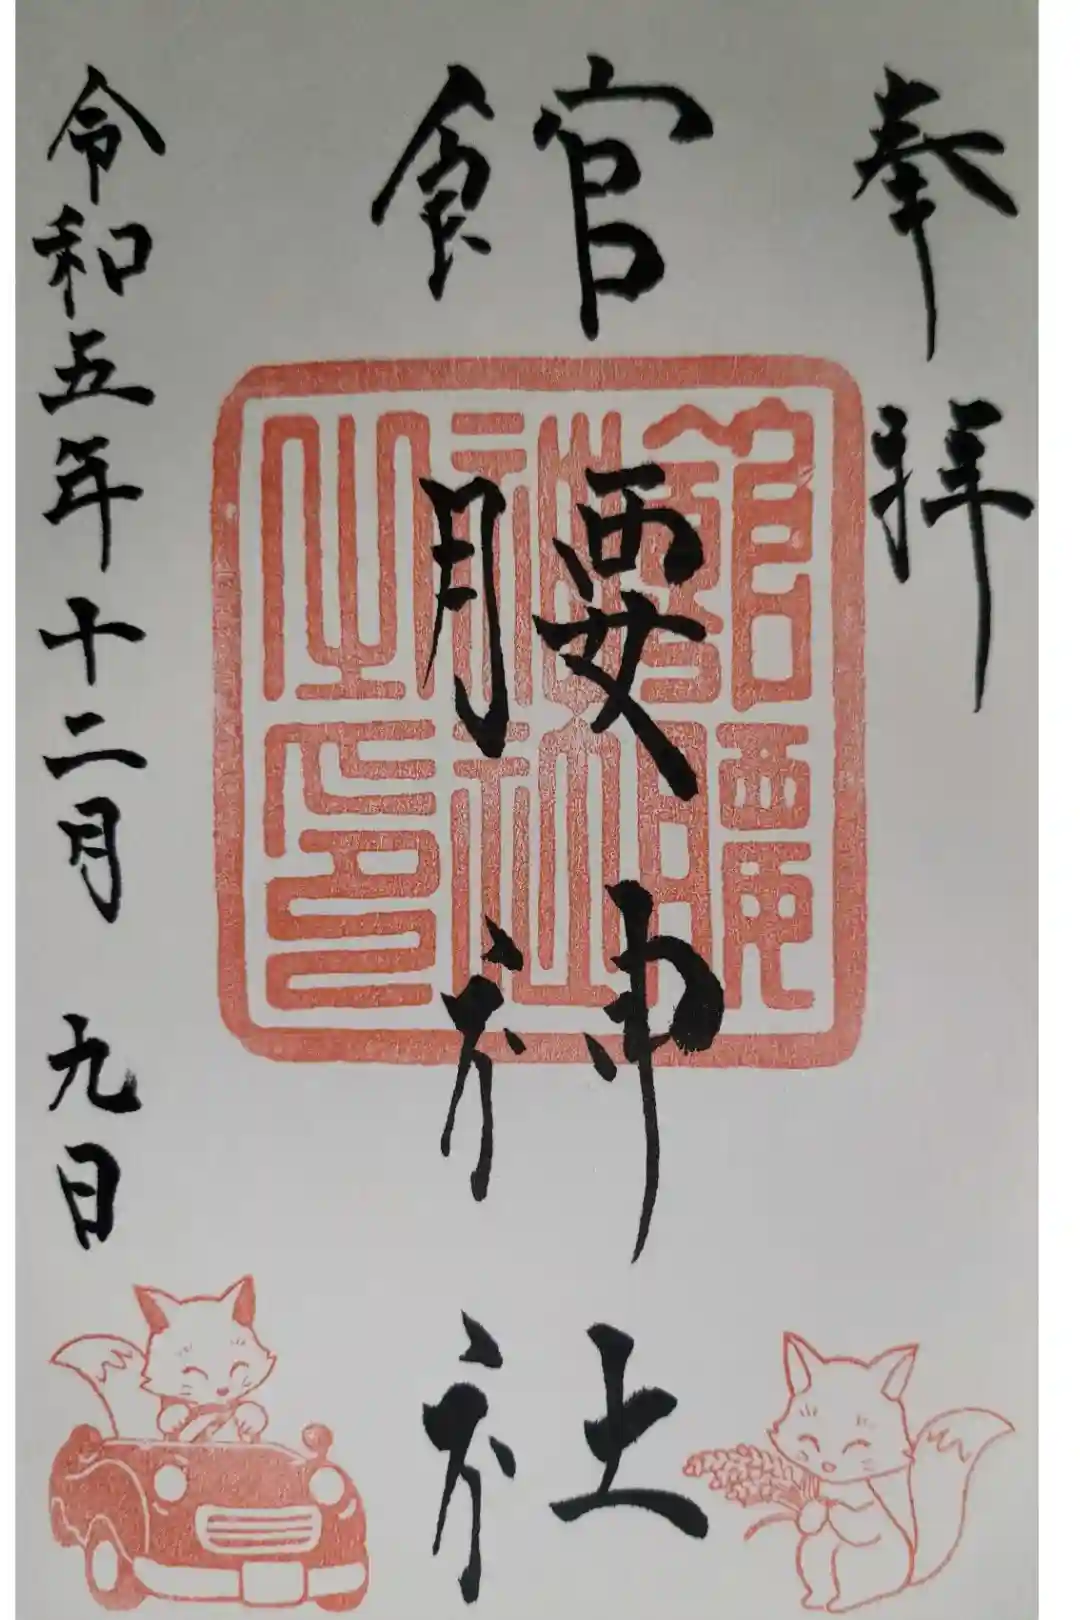 奉拝
館腰神社
館腰神社之印
令和五年十二月九日